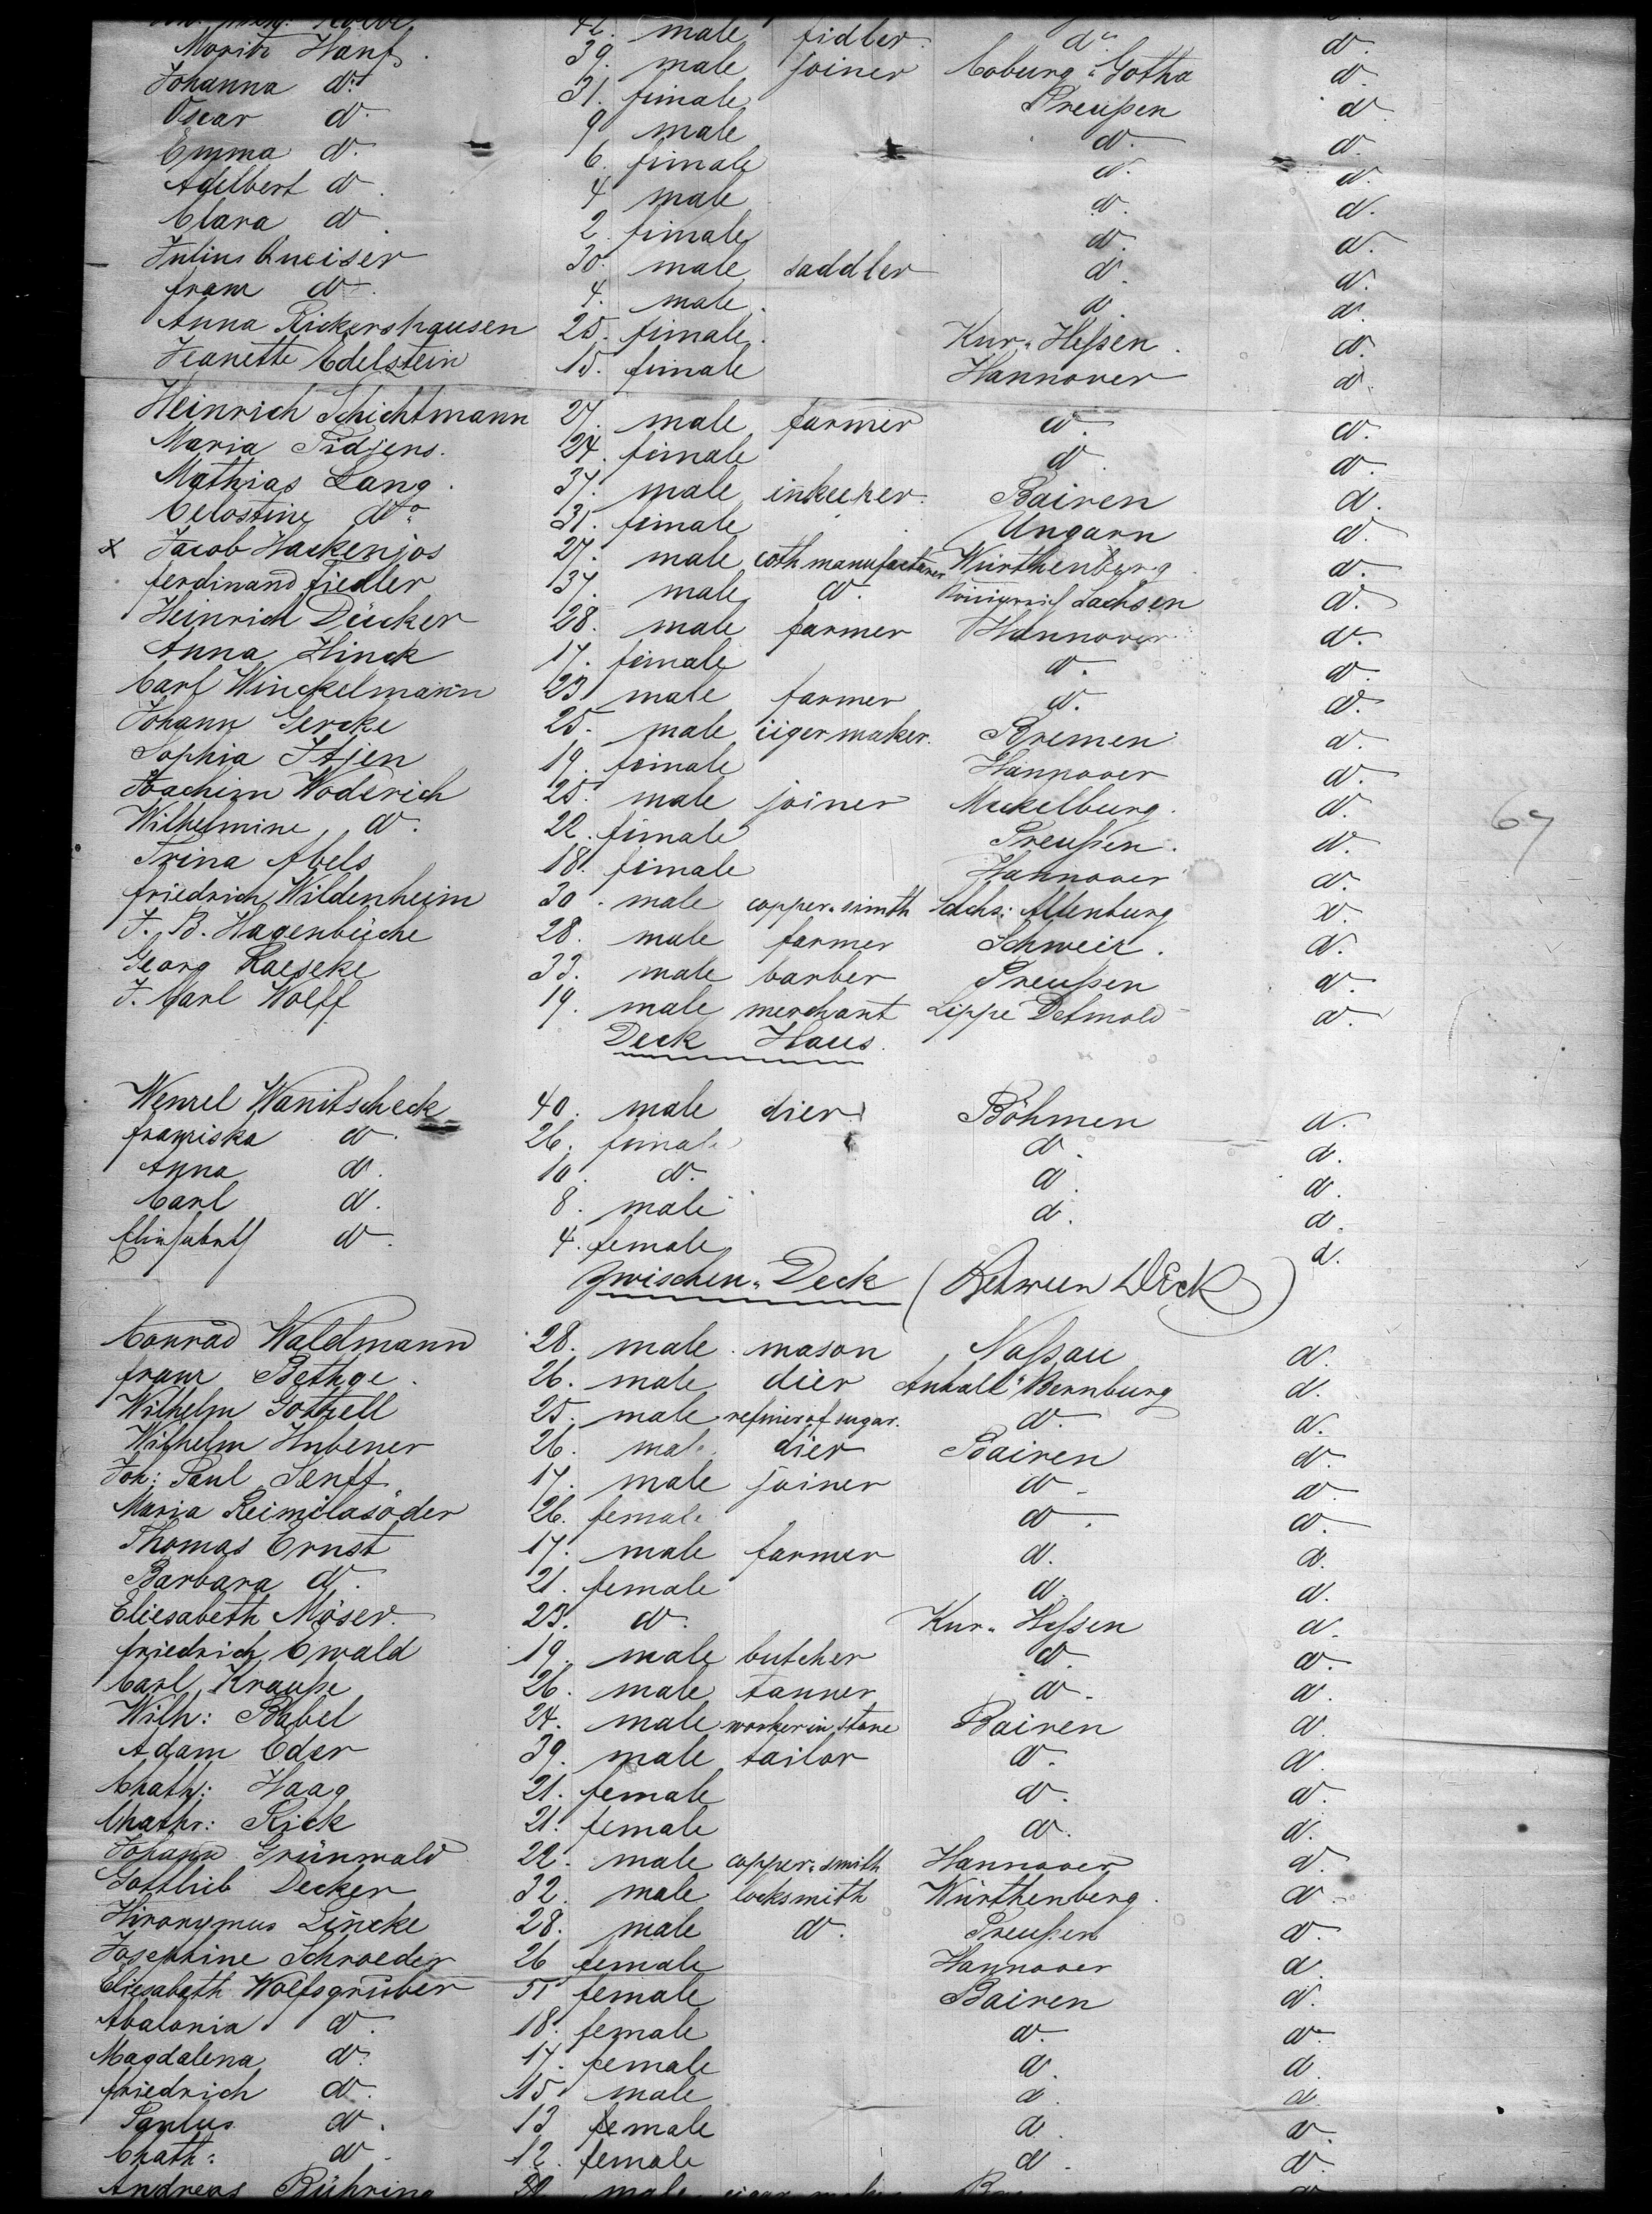 42. male fidler. do d.
Moritz Hanf. 39. male joiner Coburg=Gotha d.
Johanna do 31. fimale Preußen d.
Oscar do 9 male do d.
Emma do 6. fimale d. d.
Adelbert do 4 male d. d.
Clara do 2. fimale d. d.
Julius Gneiser 30. male saddler d. d.
franz do 4. male. d. d.
Anna Rickershausen 25. fimale. Kur=Heßen. d.
Jeanette Edelstein 15. fimale Hannover d.
Heinrich Schichtmann 27. male farmer d. d.
Maria Tidjens. 24. fimale d. d.
Mathias Lang. 37. male inkeeper. Bairen d.
Celostine do 31. fimale Ungarn d.
x Jacob Hackenjos 27. male coth manufacturer Würthenberg d.
ferdinand fiedler 37. male d. Königreich Sachsen d.
Heinrich Dücker 28. male farmer Hannover d.
Anna Hinck 17. fimale d. d.
Carl Winckelmann 23 male farmer d. d.
Johann Gercke 25. male ciger maker. Bremen d.
Sophia Itjen 19. fimale Hannover d.
Joachim Woderich 25. male joiner Meckelburg. d.
Wilhelmine d. 22. fimale Preußen. d.
Trina Abels 18. fimale Hannover d.
friedrich Wildenheim 30. male copper=simth Sachs: Altenburg d.
J. B. Hagenbüche 28. male farmer Schweiz. d.
Georg Raeseke 33. male barber Preußen d.
J. Carl Wolff 19. male merchant Lippe Detmold d.
67
Deck Haus.
Wenzel Wanitscheck 40. male dier Böhmen d.
franziska d. 26. fimale d. d.
Anna d. 10. d. d. d.
Carl d. 8. male d. d.
Elisabeth d. 4. female d.
Zwischen=Deck (Between Deck)
Conrad Waldmann 28. male. mason Naßau d.
franz Bethge. 26. male dier Anhalt=Bernburg d.
Wilhelm Gottzell 25. male refiner of sugar. d. d.
Wilhelm Hubener 26. male dier Bairen d.
Joh: Paul Senff 17. male joiner d. d.
Maria 26. female d. d.
Thomas Ernst 17. male farmer d. d.
Barbara d. 21. female d. d.
Eliesabeth Möser 23. d. Kur=Heßen d.
friedrich Ewald 19. male butcher d. d.
Carl Krauße 26. male tanner d. d.
Wilh: Babel 24. male worker in stone Bairen d.
Adam Eder 39. male tailor d. d.
Chath: Haag 21. female d. d.
Chathr: Rick 21. female d. d.
Johann Grünwald 22. male copper=smith Hannover d.
Gottlieb Decker 32. male locksmith Würthenberg. d.
Hironymus Lincke 28. male d. Preußen d.
Josephine Schroeder 26 female Hannover d.
Eliesabeth Wolfsgruber 51 female Bairen d.
Abalonia d. 18. female d. d.
Magdalena d. 17. female d. d.
friedrich d. 15. male d. d.
Paulus d. 13 female d. d.
Chath: d. 12. female d. d.
Andreas Bühring male